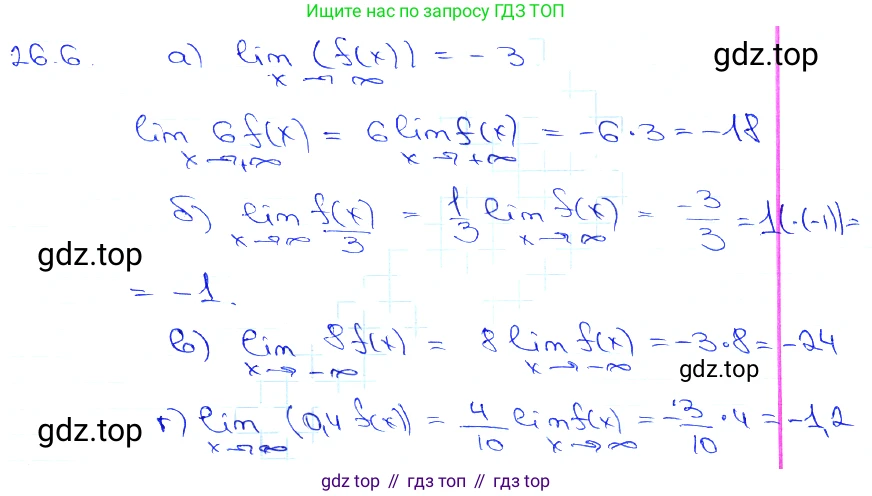 Ищите нас по запросу ГДЗ ТОП
26.6. а) lim x→∞ (f(x)) = -3 gdz.top
lim x→+∞ 6f(x) = 6 lim x→+∞ f(x) = -6·3 = -18
б) lim x→∞ f(x)/3 = 1/3 lim x→∞ f(x) = -3/3 = 1(·(-1)) =
gdz.top
= -1.
в) lim x→-∞ 8f(x) = 8 lim x→-∞ f(x) = -3·8 = -24
gdz.top
г) lim x→∞ (0,4 f(x)) = 4/10 lim x→∞ f(x) = -3/10 · 4 = -1,2
gdz.top
gdz.top // гдз.top // гдз top